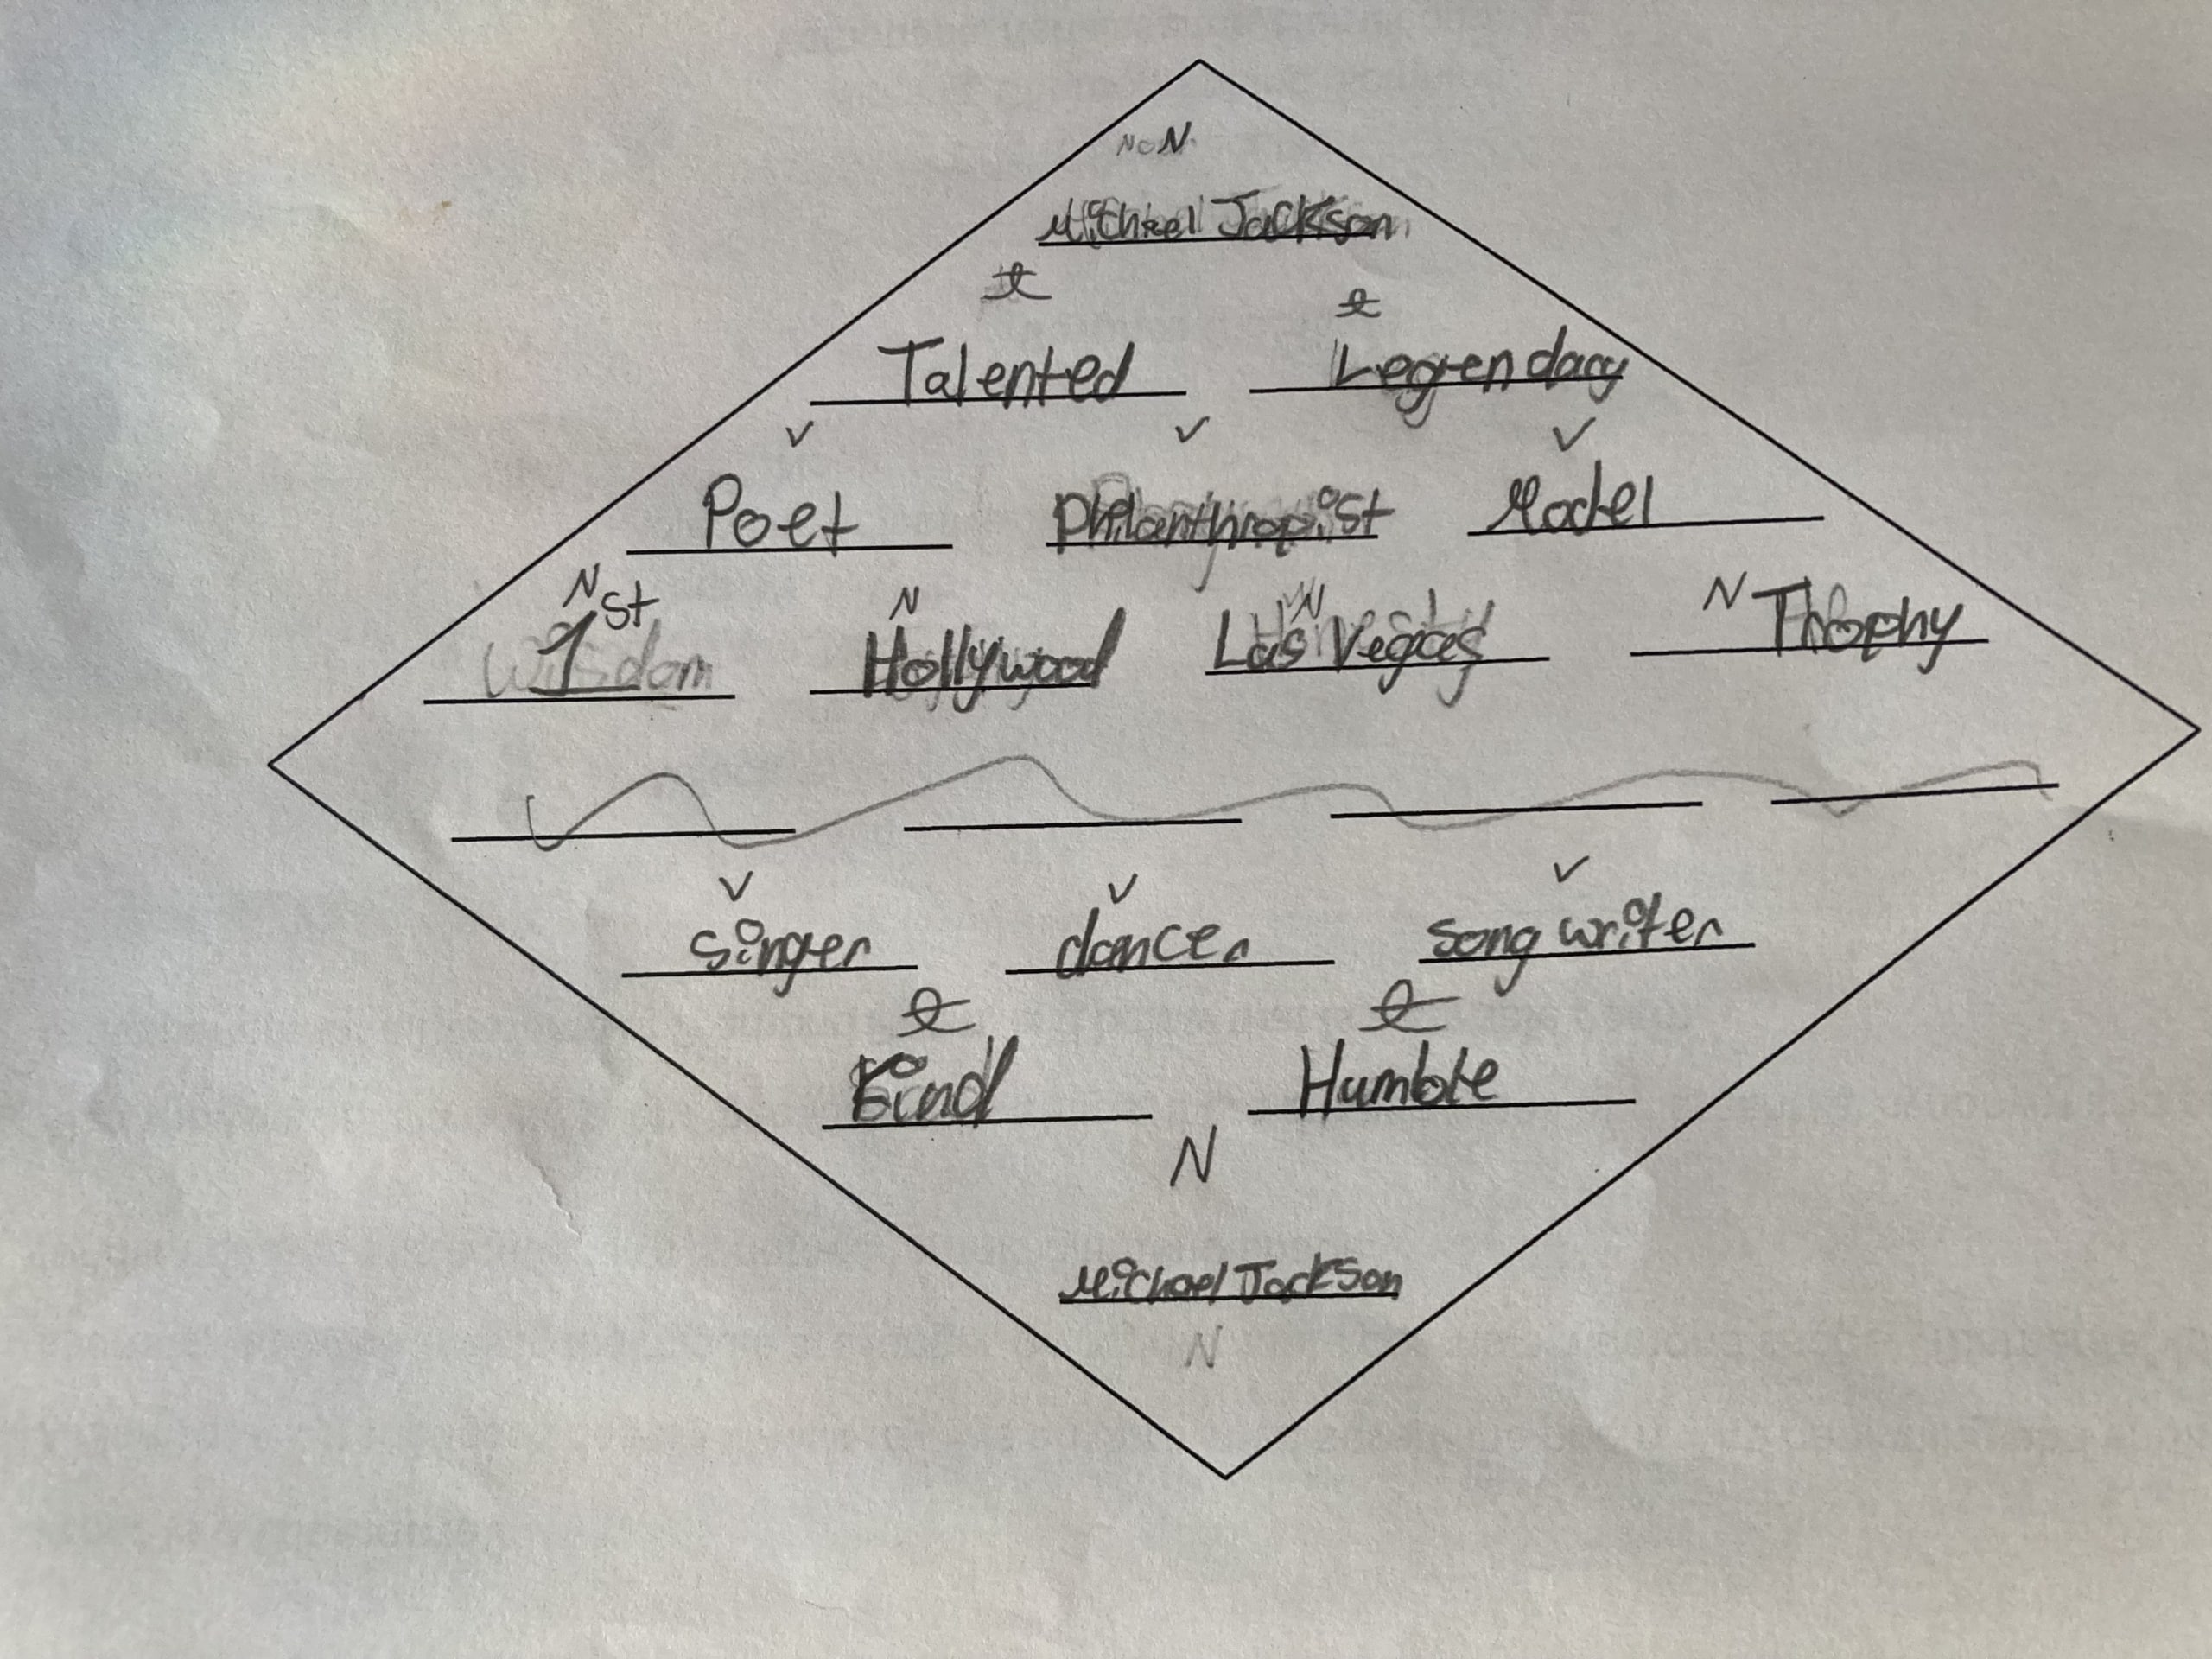 N
Michael Jackson
Talented Legendary
V V V
Poet Philanthropist Model
N N N N
1st Hollywood Las Vegas Trophy
V V V
singer dancer song writer
Kind Humble
N
Michael Jackson
N